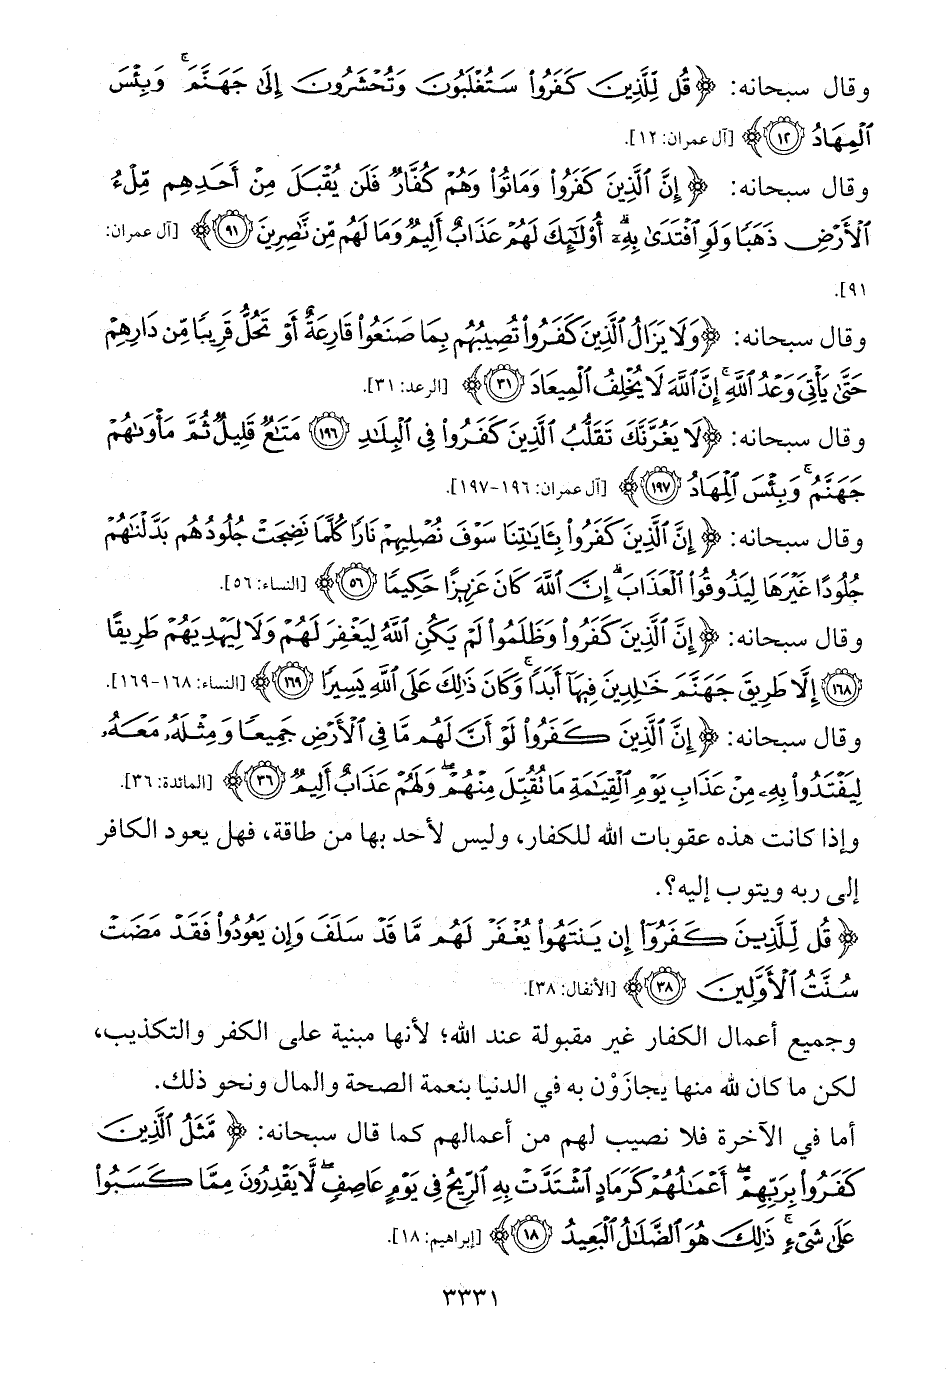 وقال سبحانه: ﴿قُل لِّلَّذِينَ كَفَرُوا۟ سَتُغْلَبُونَ وَتُحْشَرُونَ إِلَىٰ جَهَنَّمَ ۚ وَبِئْسَ
ٱلْمِهَادُ ١٢﴾ [آل عمران: ١٢].
وقال سبحانه: ﴿إِنَّ ٱلَّذِينَ كَفَرُوا۟ وَمَاتُوا۟ وَهُمْ كُفَّارٌ فَلَن يُقْبَلَ مِنْ أَحَدِهِم مِّلْءُ
ٱلْأَرْضِ ذَهَبًا وَلَوِ ٱفْتَدَىٰ بِهِۦٓ ۗ أُو۟لَٰٓئِكَ لَهُمْ عَذَابٌ أَلِيمٌ وَمَا لَهُم مِّن نَّٰصِرِينَ ٩١﴾ [آل عمران:
٩١].
وقال سبحانه: ﴿وَلَا يَزَالُ ٱلَّذِينَ كَفَرُوا۟ تُصِيبُهُم بِمَا صَنَعُوا۟ قَارِعَةٌ أَوْ تَحُلُّ قَرِيبًا مِّن دَارِهِمْ
حَتَّىٰ يَأْتِىَ وَعْدُ ٱللَّهِ ۚ إِنَّ ٱللَّهَ لَا يُخْلِفُ ٱلْمِيعَادَ ٣١﴾ [الرعد: ٣١].
وقال سبحانه: ﴿لَا يَغُرَّنَّكَ تَقَلُّبُ ٱلَّذِينَ كَفَرُوا۟ فِى ٱلْبِلَٰدِ ١٩٦ مَتَٰعٌ قَلِيلٌ ثُمَّ مَأْوَىٰهُمْ
جَهَنَّمُ ۚ وَبِئْسَ ٱلْمِهَادُ ١٩٧﴾ [آل عمران: ١٩٦-١٩٧].
وقال سبحانه: ﴿إِنَّ ٱلَّذِينَ كَفَرُوا۟ بِـَٔايَٰتِنَا سَوْفَ نُصْلِيهِمْ نَارًا كُلَّمَا نَضِجَتْ جُلُودُهُم بَدَّلْنَٰهُمْ
جُلُودًا غَيْرَهَا لِيَذُوقُوا۟ ٱلْعَذَابَ ۗ إِنَّ ٱللَّهَ كَانَ عَزِيزًا حَكِيمًا ٥٦﴾ [النساء: ٥٦].
وقال سبحانه: ﴿إِنَّ ٱلَّذِينَ كَفَرُوا۟ وَظَلَمُوا۟ لَمْ يَكُنِ ٱللَّهُ لِيَغْفِرَ لَهُمْ وَلَا لِيَهْدِيَهُمْ طَرِيقًا
١٦٨ إِلَّا طَرِيقَ جَهَنَّمَ خَٰلِدِينَ فِيهَآ أَبَدًا ۚ وَكَانَ ذَٰلِكَ عَلَى ٱللَّهِ يَسِيرًا ١٦٩﴾ [النساء: ١٦٨-١٦٩].
وقال سبحانه: ﴿إِنَّ ٱلَّذِينَ كَفَرُوا۟ لَوْ أَنَّ لَهُم مَّا فِى ٱلْأَرْضِ جَمِيعًا وَمِثْلَهُۥ مَعَهُۥ
لِيَفْتَدُوا۟ بِهِۦ مِنْ عَذَابِ يَوْمِ ٱلْقِيَٰمَةِ مَا تُقُبِّلَ مِنْهُمْ ۖ وَلَهُمْ عَذَابٌ أَلِيمٌ ٣٦﴾ [المائدة: ٣٦].
وإذا كانت هذه عقوبات الله للكفار، وليس لأحد بها من طاقة، فهل يعود الكافر
إلى ربه ويتوب إليه؟.
﴿قُل لِّلَّذِينَ كَفَرُوٓا۟ إِن يَنتَهُوا۟ يُغْفَرْ لَهُم مَّا قَدْ سَلَفَ وَإِن يَعُودُوا۟ فَقَدْ مَضَتْ
سُنَّتُ ٱلْأَوَّلِينَ ٣٨﴾ [الأنفال: ٣٨].
وجميع أعمال الكفار غير مقبولة عند الله؛ لأنها مبنية على الكفر والتكذيب،
لكن ما كان لله منها يجازَوْن به في الدنيا بنعمة الصحة والمال ونحو ذلك.
أما في الآخرة فلا نصيب لهم من أعمالهم كما قال سبحانه: ﴿مَّثَلُ ٱلَّذِينَ
كَفَرُوا۟ بِرَبِّهِمْ ۖ أَعْمَٰلُهُمْ كَرَمَادٍ ٱشْتَدَّتْ بِهِ ٱلرِّيحُ فِى يَوْمٍ عَاصِفٍ ۖ لَّا يَقْدِرُونَ مِمَّا كَسَبُوا۟
عَلَىٰ شَىْءٍ ۚ ذَٰلِكَ هُوَ ٱلضَّلَٰلُ ٱلْبَعِيدُ ١٨﴾ [إبراهيم: ١٨].
٣٣٣١